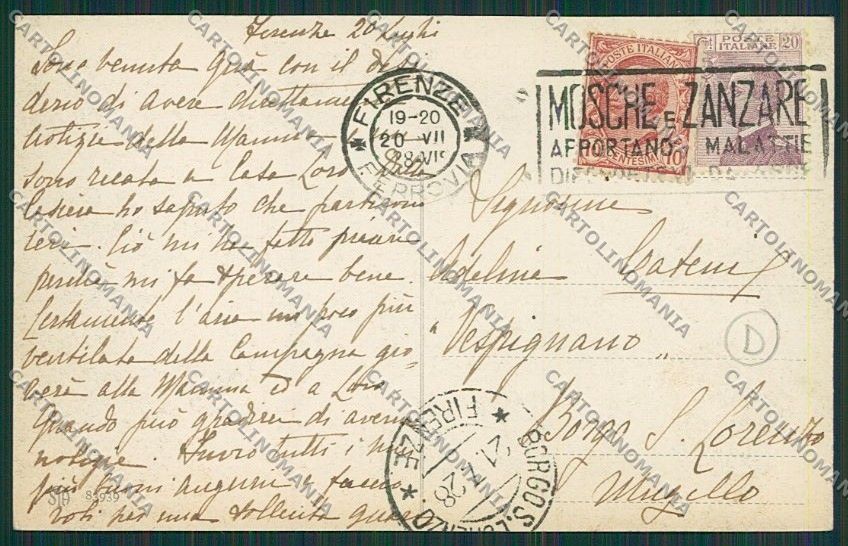 Firenze 20 Luglio
Sono venuta quà con il desi
derio di avere direttamente
notizie della Mamma
sono recata a Casa Loro
ho saputo che partirono
ieri. Ciò mi ha fatto piacere
perchè mi fa sperare bene.
Certamente l'aria un poco più
ventilata della Campagna gio-
verà alla Mamma ed a Loro
Quando può gradirei di averne
notizie. Invio tutti i miei
più buoni auguri e faccio
voti per una sollecita
FIRENZE
19-20
20 VII
FERROVIA
MOSCHE E ZANZARE
APPORTANO MALATTIE
POSTE ITALIANE
CENTESIMI 10
POSTE
ITALIANE 20
Signorine
Adelina
"Vespignano"
Borgo S. Lorenzo
Mugello
D
BORGO S. LORENZO
FIRENZE
21 7 28
510 83939
CARTOLINOMANIA